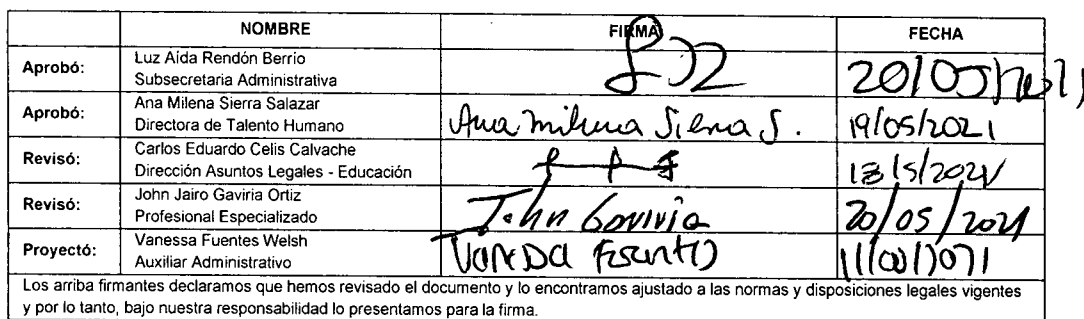 NOMBRE FIRMA FECHA
Aprobó: Luz Aída Rendón Berrio
Subsecretaria Administrativa
20/05/2021
Aprobó: Ana Milena Sierra Salazar
Directora de Talento Humano
Ana Milena Sierra S. 19/05/2021
Revisó: Carlos Eduardo Celis Calvache
Dirección Asuntos Legales - Educación
Revisó: John Jairo Gaviria Ortiz
Profesional Especializado
John Gaviria 20/05/2021
Proyectó: Vanessa Fuentes Welsh
Auxiliar Administrativo
Los arriba firmantes declaramos que hemos revisado el documento y lo encontramos ajustado a las normas y disposiciones legales vigentes
y por lo tanto, bajo nuestra responsabilidad lo presentamos para la firma.